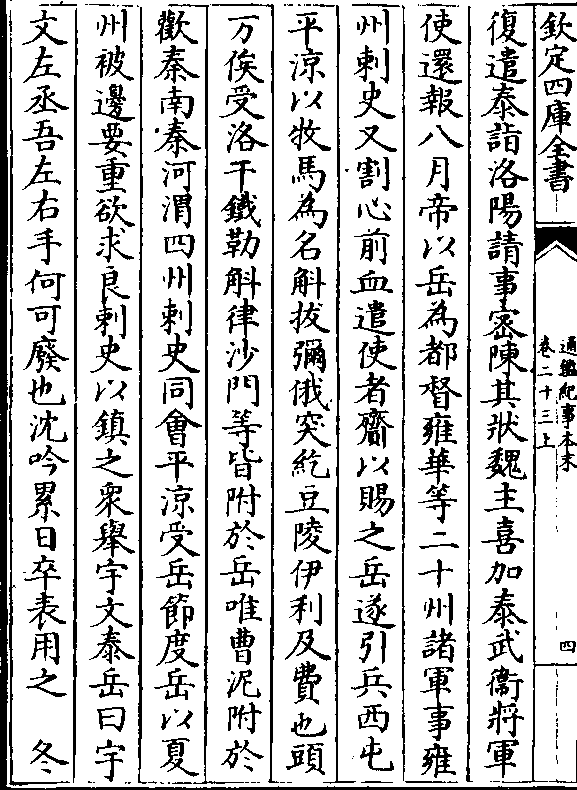 欽定四庫全書
通鑑紀事本末
卷二十三上
四
復遣泰詣洛陽請事密陳其狀魏主喜加泰武衞將軍
使還報八月帝以岳為都督雍華等二十州諸軍事雍
州刺史又割心前血遣使者齎以賜之岳遂引兵西屯
平涼以牧馬為名斛拔彌俄突紇豆陵伊利及費也頭
万俟受洛干鐵勒斛律沙門等皆附於岳唯曹泥附於
歡秦南秦河渭四州刺史同會平涼受岳節度岳以夏
州被邊要重欲求良刺史以鎮之衆舉宇文泰岳曰宇
文左丞吾左右手何可廢也沈吟累日卒表用之　冬